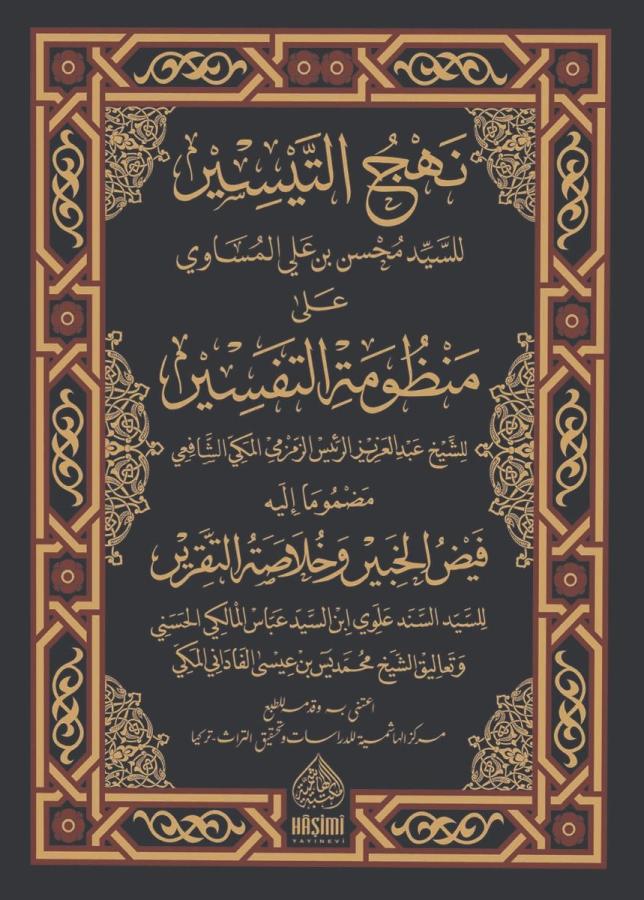 نَهْجُ التَّيْسِيْرِ
للسَّيِّد مُحْسن بن عَلي المُسَاوي
عَلىٰ
مَنْظُومَةِ التَفْسِيْرِ
لِلشَّيْخ عَبْد العَزيز الرئيس الزمزمي المَكّي الشَّافِعي
مَضْمُومًا إِلَيه
فَيْضُ الخَبِيْرِ وَخُلَاصَةُ التَّقْرِيْرِ
لِلسَّيّد السَنَد عَلَوي ابْن السَيّد عَبّاس المْالكي الحَسَني
وَتَعَاليق الشَيْخ مُحَمَد يَس بْن عِيسىٰ الفَادَاني المَكي
اعتنى به وقدمه للطبع
مركز الهاشمية للدراسات وتحقيق التراث - تركيا
HÂŞİMÎ
YAYINEVİ